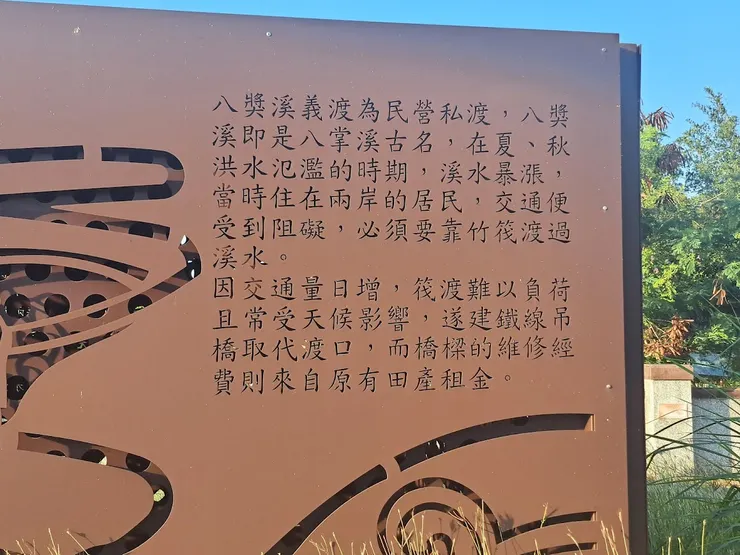 八獎溪義渡為民營私渡，八獎
溪即是八掌溪古名，在夏、秋
洪水氾濫的時期，溪水暴漲，
當時住在兩岸的居民，交通便
受到阻礙，必須要靠竹筏渡過
溪水。
因交通量日增，筏渡難以負荷
且常受天候影響，遂建鐵線吊
橋取代渡口，而橋樑的維修經
費則來自原有田產租金。